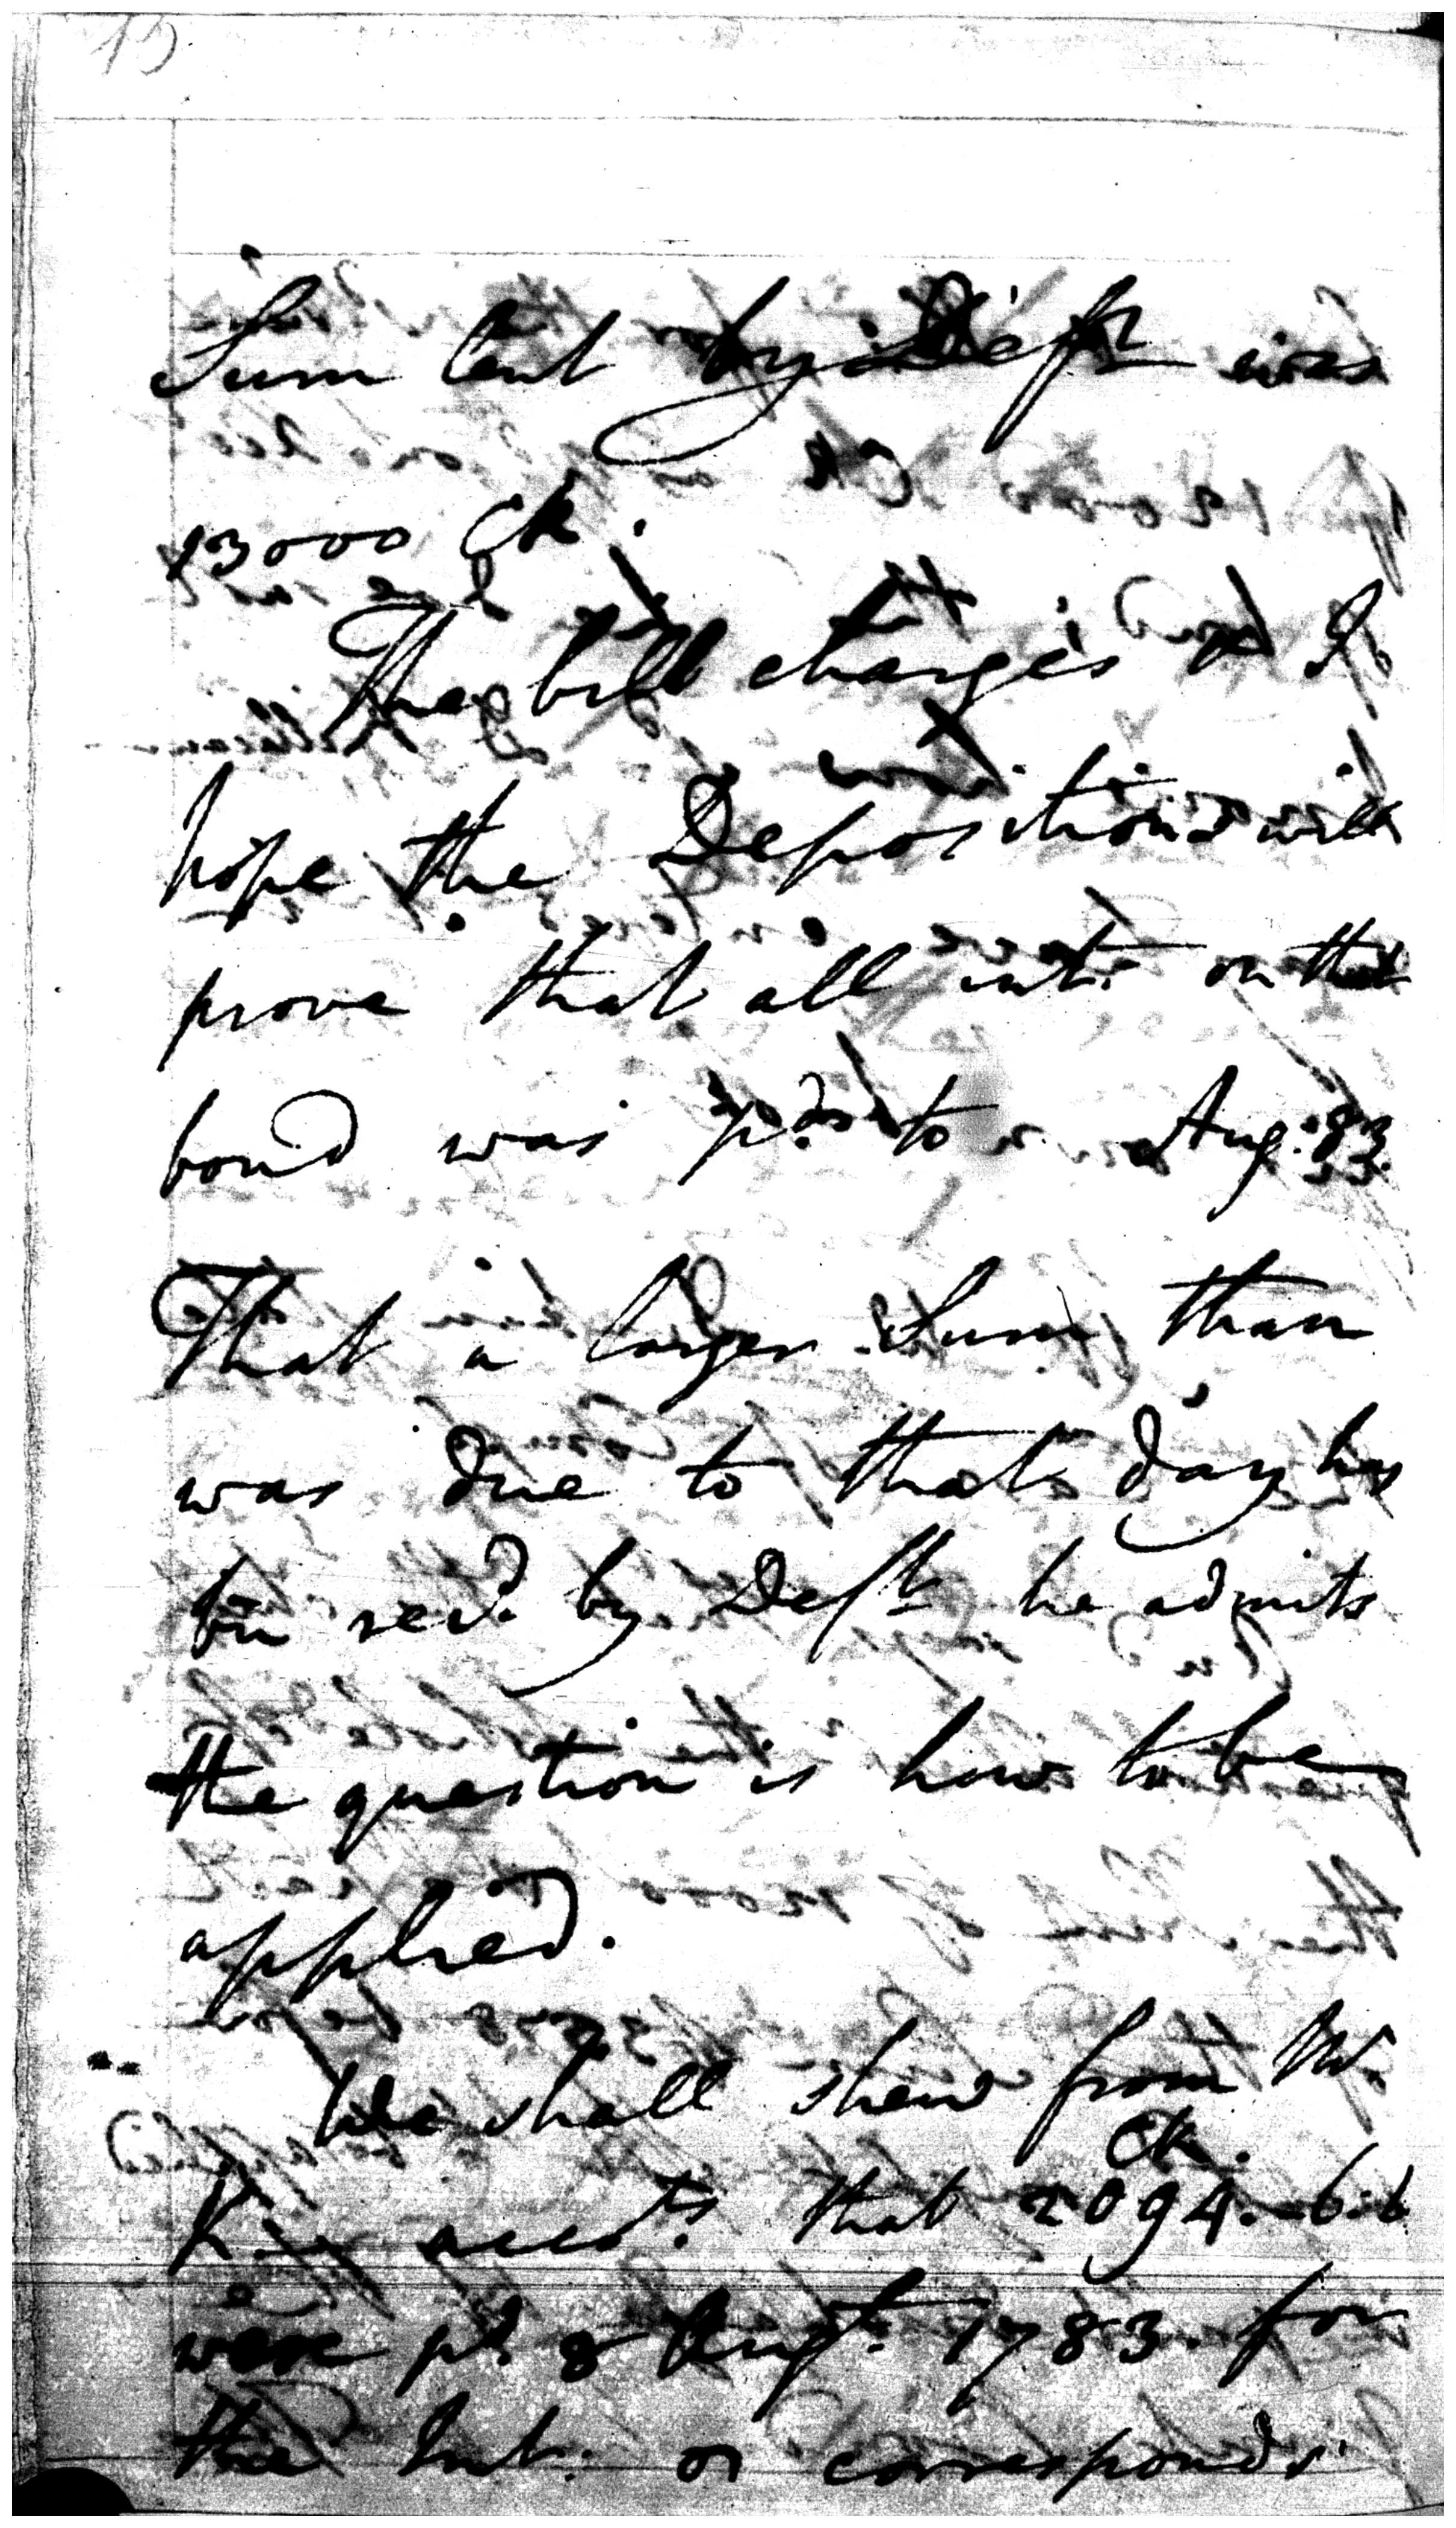 15
Sum lent by Deft was
13000 Ck.
The bill charges & I
hope the Depositions will
prove that all int. on that
bond was pd. to Aug: 83.
That a larger Sum than
was due to that day has
bin recd. by Deft he admits
the question is how to be
applied.
We shall shew from Mr.
accots. that 2094. 6. 6
Ck.
were pd. 8 Augt. 1783. for
the Int. or corresponds